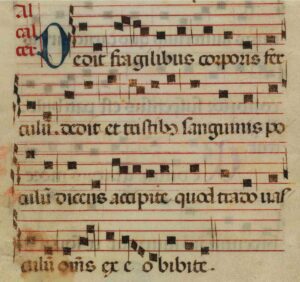 Al
cal
cer
Dedit fragilibus corporis fer
culum. dedit et tristibus sanguinis po
culum dicens accipite quod trado uas
culum omnes ex eo bibite.